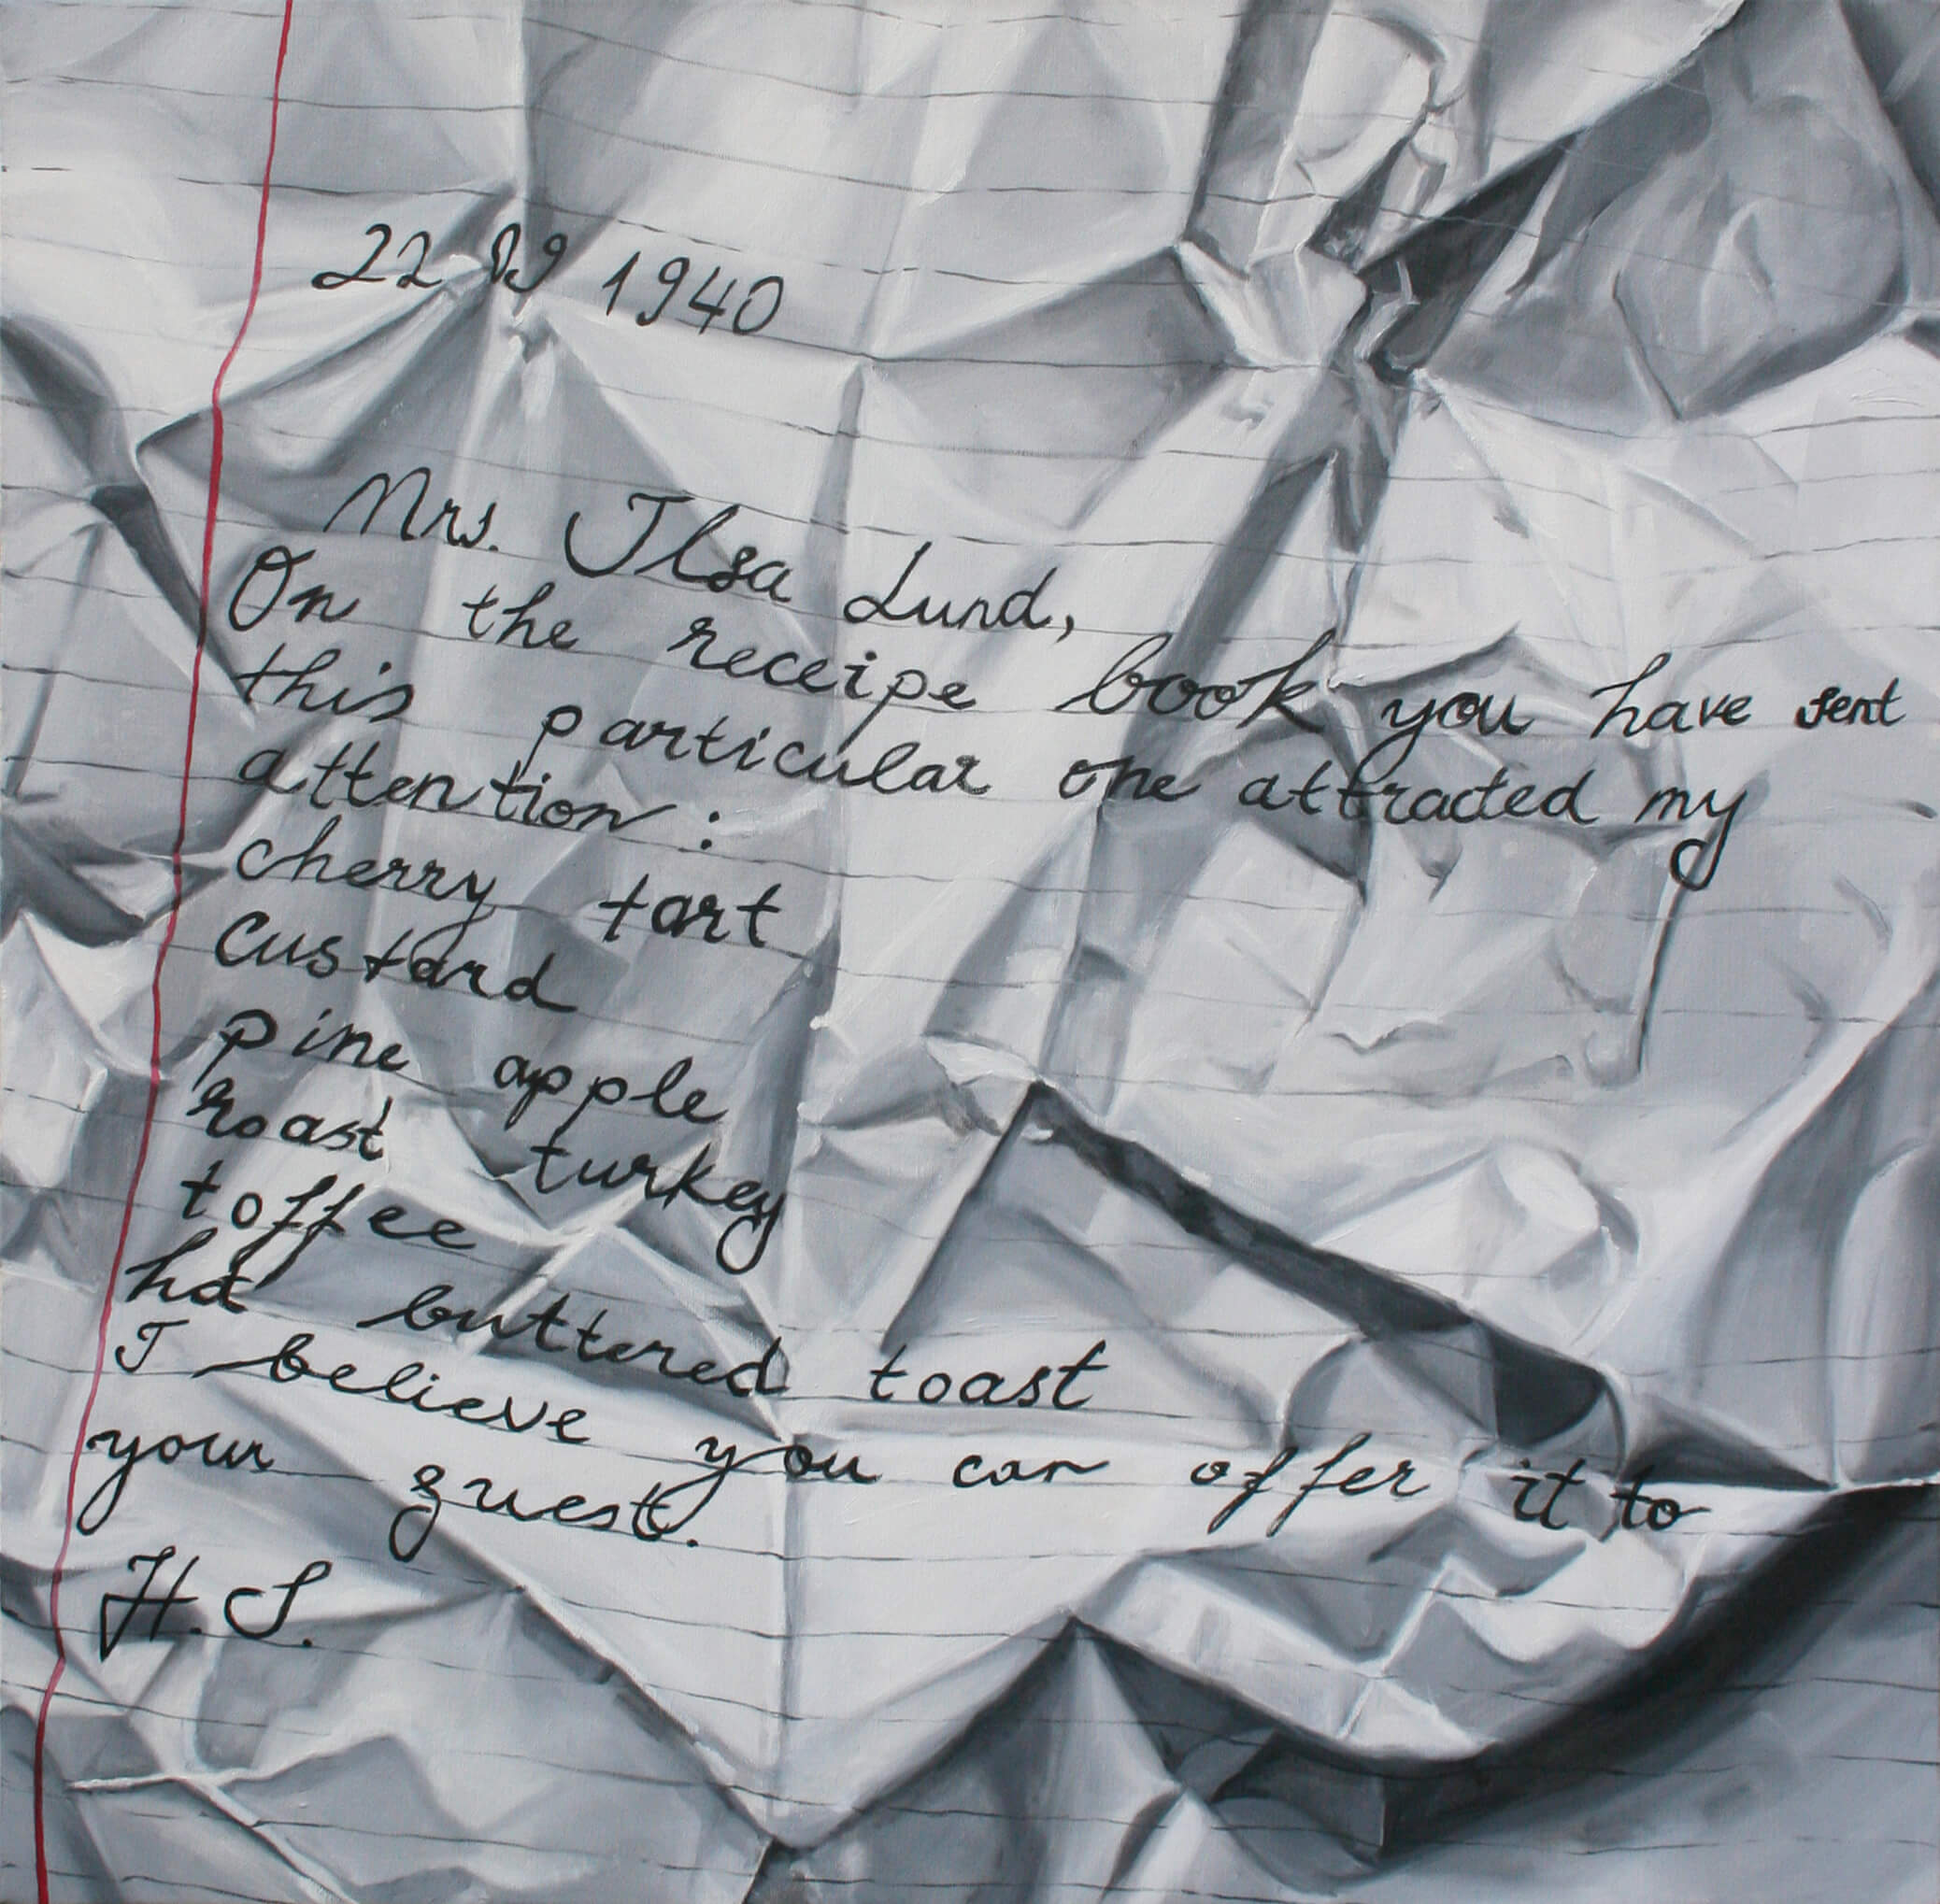 22 09 1940
Mrs. Ilsa Lund,
On the receipe book you have sent
this particular one attracted my
attention:
cherry tart
Custard
pine apple
roast turkey
toffee
hot buttered toast
I believe you can offer it to
your guest.
H. S.